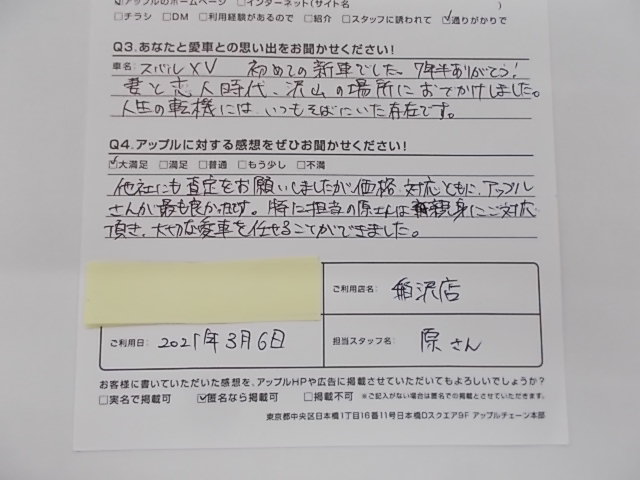 ☑アップルのホームページ □インターネット(サイト名
□チラシ □DM □利用経験があるので □紹介 □スタッフに誘われて ☑通りがかりで
Q3.あなたと愛車との思い出をお聞かせください!
車名: スバル XV 初めての新車でした。7年半ありがとう!
妻と恋人時代、沢山の場所におでかけしました。
人生の転機には、いつもそばにいた存在です。
Q4.アップルに対する感想をぜひお聞かせください!
☑大満足 □満足 □普通 □もう少し □不満
他社にも査定をお願いしましたが価格、対応ともに、アップル
さんが最も良かったです。特に担当の原さんは親身にご対応
頂き、大切な愛車を任せることができました。
ご利用店名: 稲沢店
ご利用日: 2021年3月6日
担当スタッフ名: 原さん
お客様に書いていただいた感想を、アップルHPや広告に掲載させていただいてもよろしいでしょうか?
□実名で掲載可 ☒匿名なら掲載可 □掲載不可 ※ご記入がない場合は匿名での掲載とさせていただきます。
東京都中央区日本橋1丁目16番11号日本橋Dスクエア9F アップルチェーン本部